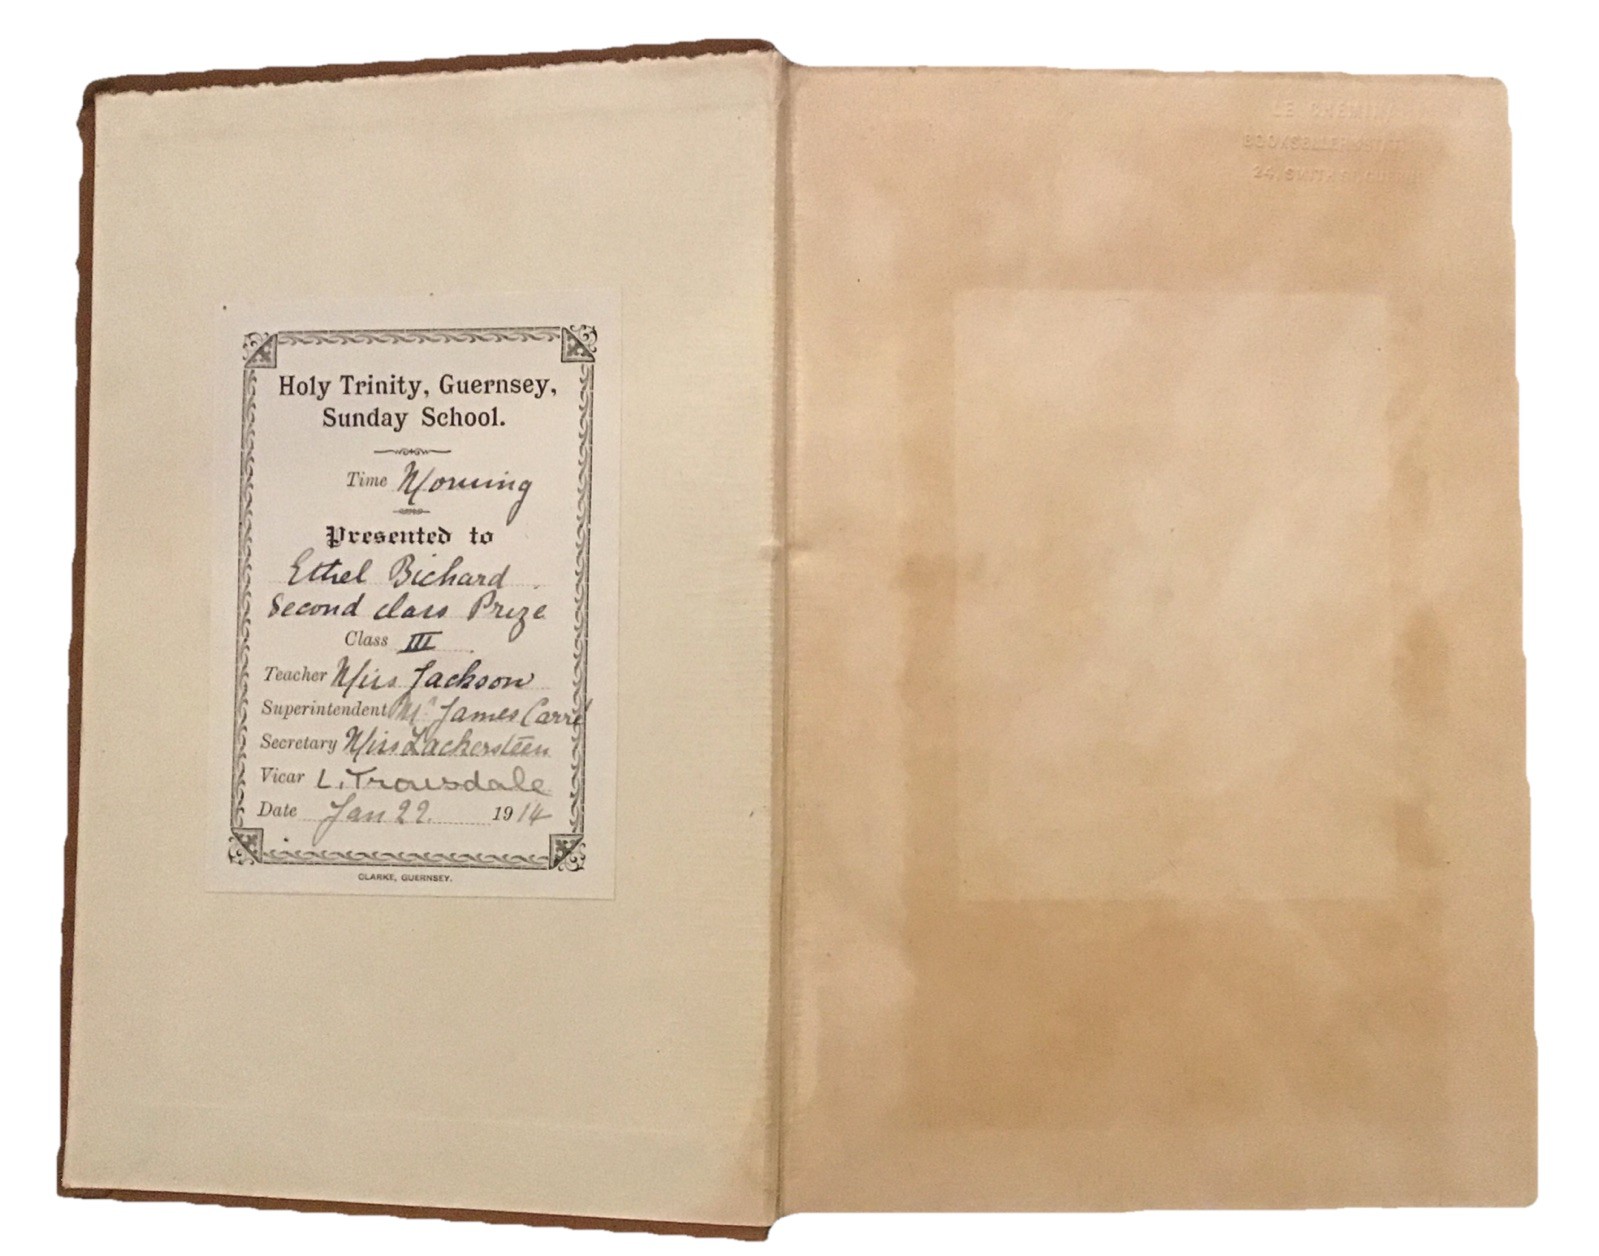 Holy Trinity, Guernsey,
Sunday School.
Time Morning
Presented to
Ethel Bichard
Second class Prize
Class III
Teacher Miss Jackson
Superintendent Mr James Carré
Secretary Miss Lackersteen
Vicar L. Trousdale
Date Jan 22. 1914
CLARKE, GUERNSEY.
BOOKSELLER
24, SMITH ST.